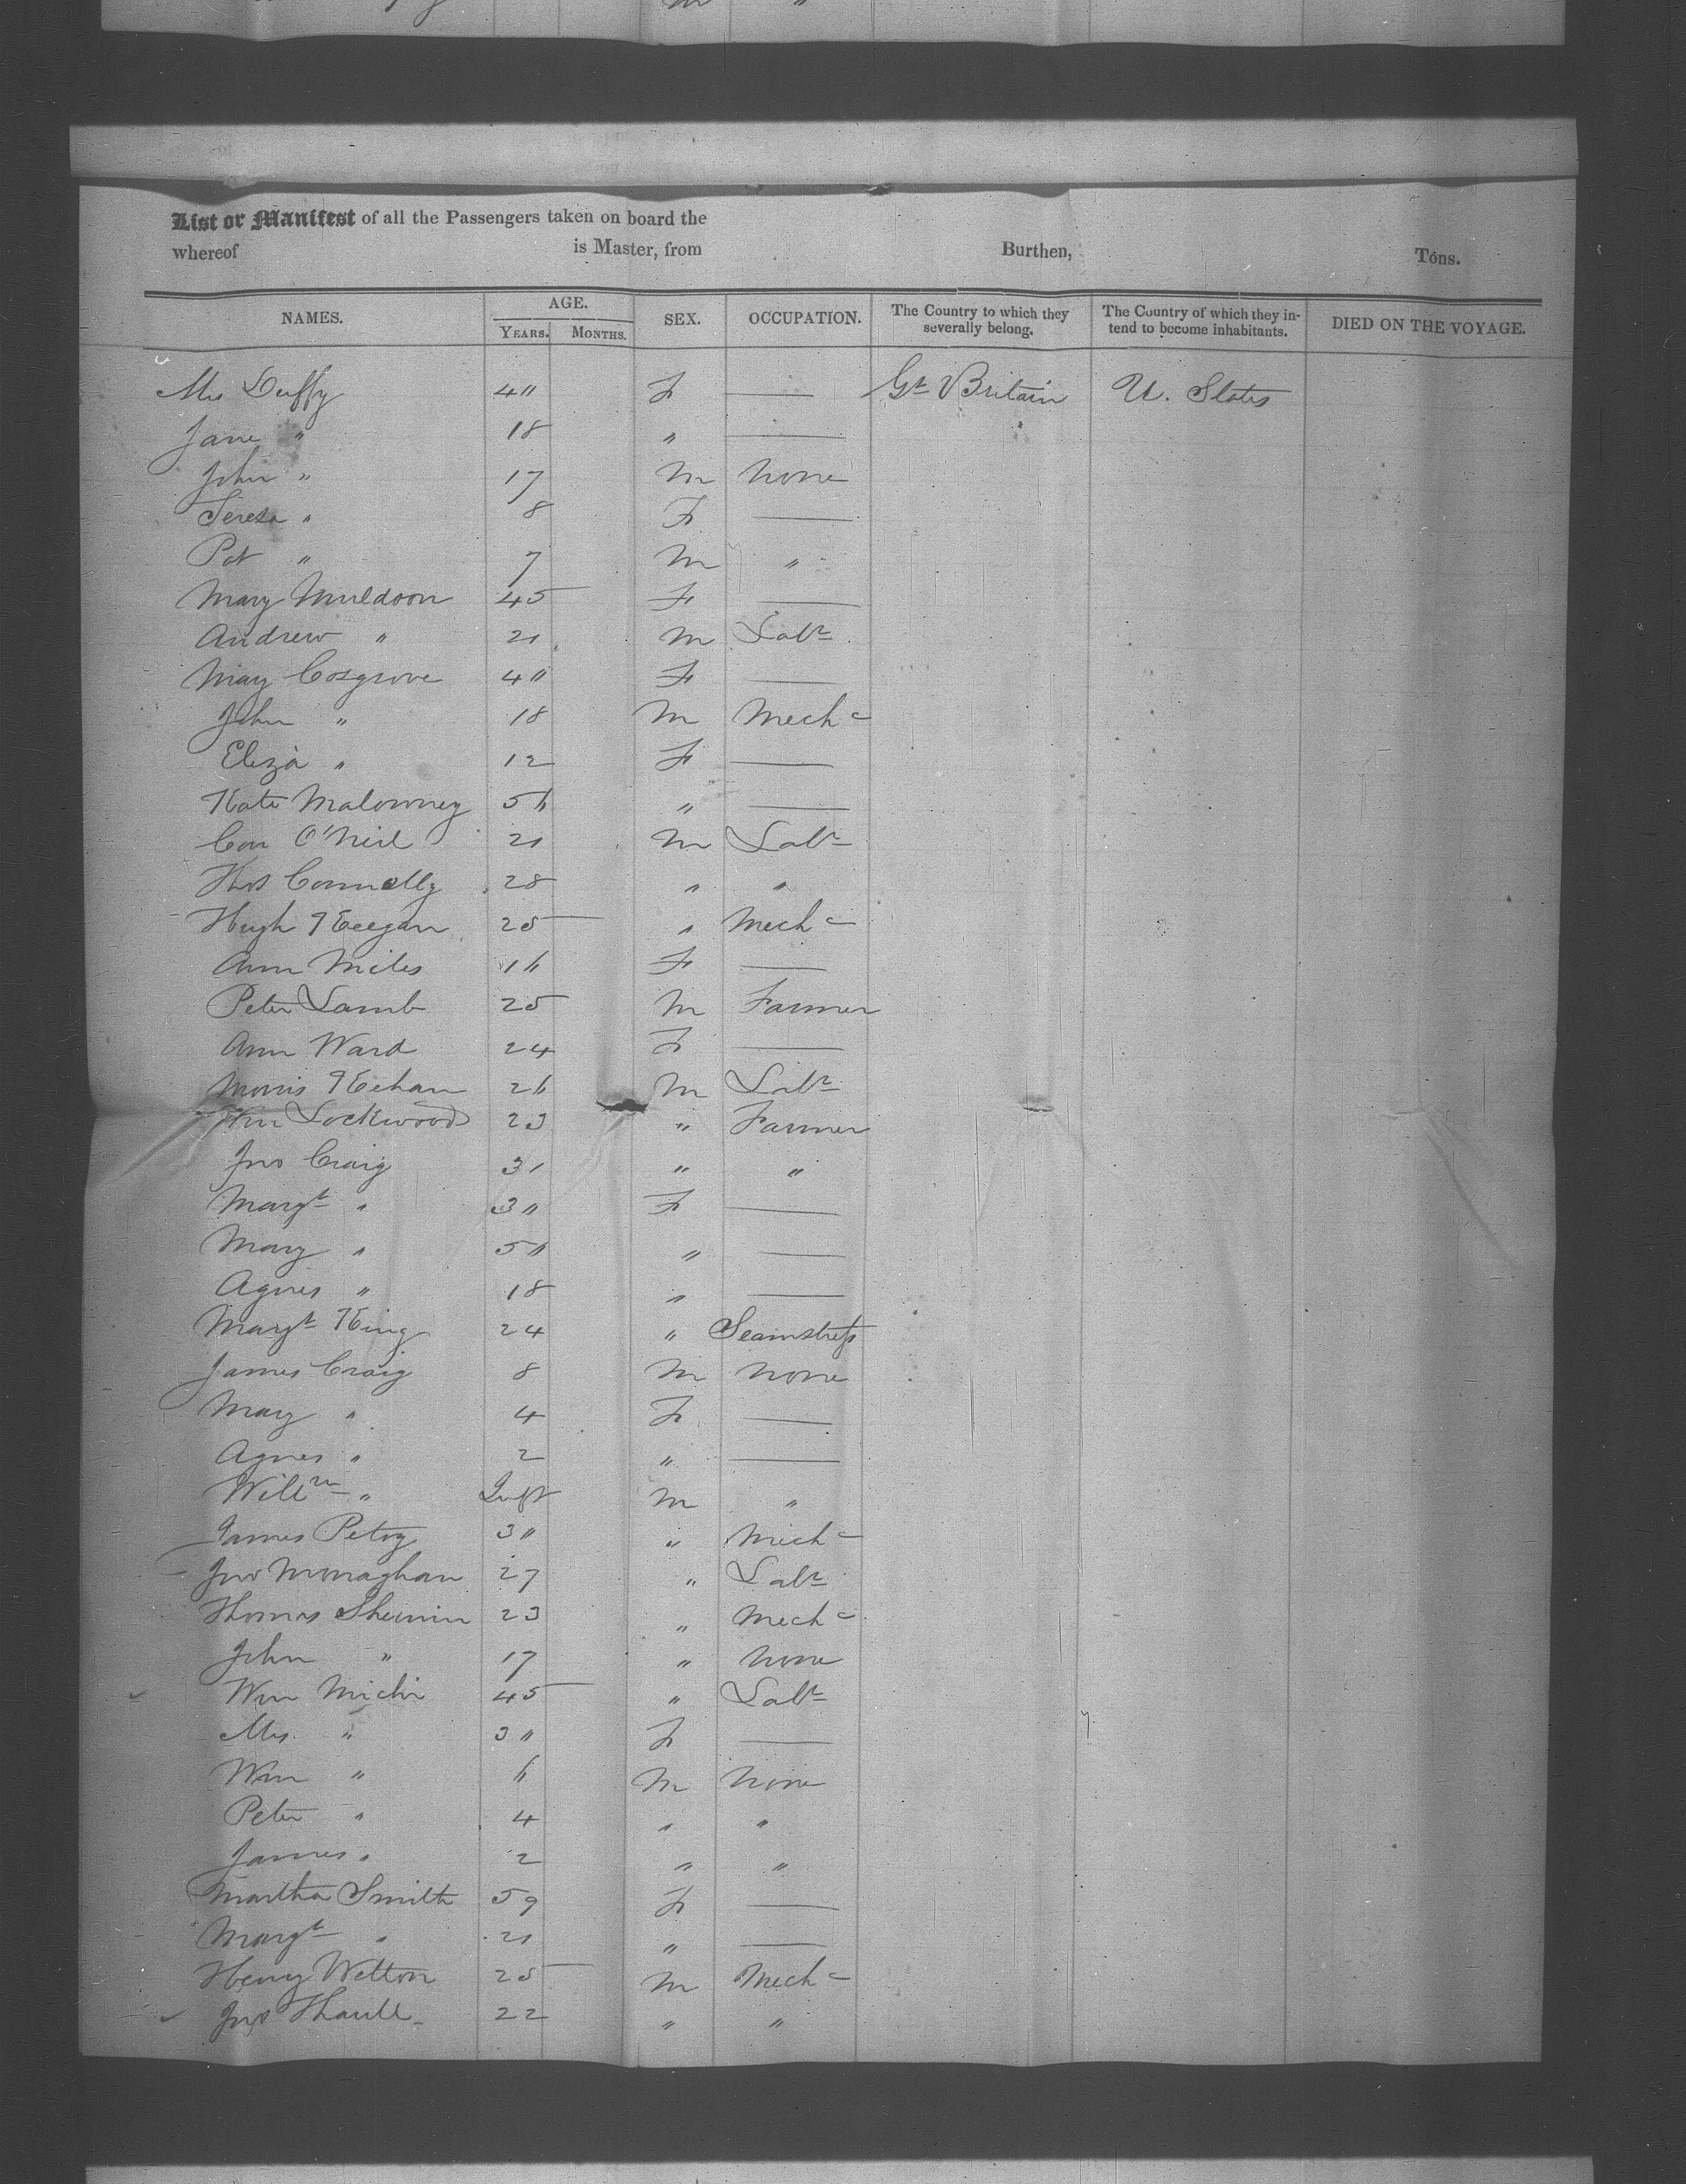 m "
List or Manifest of all the Passengers taken on board the
whereof is Master, from Burthen, Tons.
NAMES. AGE. YEARS. MONTHS. SEX. OCCUPATION. The Country to which they severally belong. The Country of which they intend to become inhabitants. DIED ON THE VOYAGE.
Mrs Duffy 40 F — Gt Britain U. States
Jane " 18 " —
John " 17 M None
Teresa " 8 F —
Pat " 7 M "
Mary Muldoon 45 F —
Andrew " 21 M Labr
Mary Cosgrove 40 F —
John " 18 M Mechc
Eliza " 12 F —
Kate Malowney 56 " —
Con O'Neil 21 M Labr
Thos Connolly 28 " "
Hugh Keegan 25 " Mechc
Ann Miles 16 F —
Peter Lamb 25 M Farmer
Ann Ward 24 F —
Morris Kehan 26 M Labr
Wm Lockwood 23 " Farmer
Jno Craig 31 " "
Margt " 30 F —
Mary " 50 " —
Agnes " 18 " —
Margt King 24 " Seamstress
James Craig 8 M None
Mary " 4 F —
Agnes " 2 " —
Willm " Inft M "
James Petry 30 " Mechc
Jno Monaghan 27 " Labr
Thomas 23 " Mechc
John " 17 " None
Wm Michie 45 " Labr
Mrs. " 30 F —
Wm " 6 M None
Peter " 4 " "
James " 2 " "
Martha Smith 59 F —
Margt " 21 " —
Henry Welton 25 M Mechc
Jno 22 " "